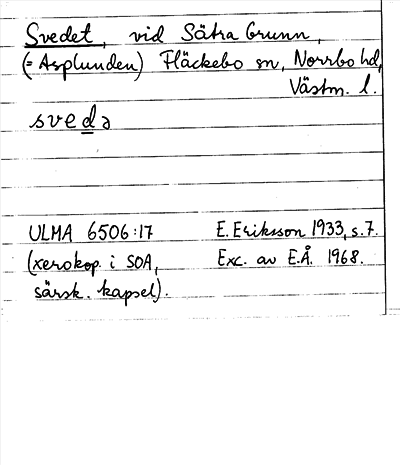 Svedet, vid Sätra Brunn,
(= Asplunden) Fläckebo sn, Norrbo hd,
Västm. l.
svedə
ULMA 6506:17 E. Eriksson 1933, s. 7.
(xerokop. i SOA, Exc. av E.Å. 1968.
särsk. kapsel).